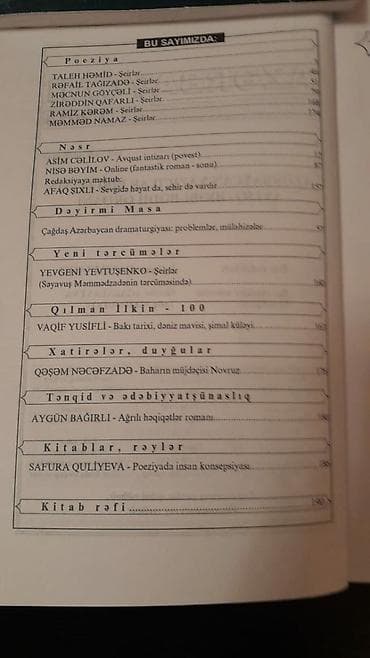 BU SAYIMIZDA:
Poeziya
TALEH HƏMİD - Şeirlər
RƏFAİL TAĞIZADƏ - Şeirlər
MƏCNUN GÖYÇƏLİ - Şeirlər
ZİRƏDDİN QAFARLI - Şeirlər
RAMİZ KƏRƏM - Şeirlər
MƏMMƏD NAMAZ - Şeirlər
Nəsr
ASİM CƏLİLOV - Avqust intizarı (povest)
NİSƏ BƏYİM - Online (fantastik roman - sonu)
Redaksiyaya məktub:
AFAQ ŞIXLI - Sevgidə həyat da, sehir də vardır
Dəyirmi Masa
Çağdaş Azərbaycan dramaturgiyası: problemlər, mülahizələr
Yeni tərcümələr
YEVGENİ YEVTUŞENKO - Şeirlər
(Səyavuş Məmmədzadənin tərcüməsində)
Qılman İlkin - 100
VAQİF YUSİFLİ - Bakı tarixi, dəniz mavisi, şimal küləyi
Xatirələr, duyğular
QƏŞƏM NƏCƏFZADƏ - Baharın müjdəçisi Novruz
Tənqid və ədəbiyyatşünaslıq
AYGÜN BAĞIRLI - Ağrılı həqiqətlər romanı
Kitablar, rəylər
SAFURA QULİYEVA - Poeziyada insan konsepsiyası
Kitab rəfi